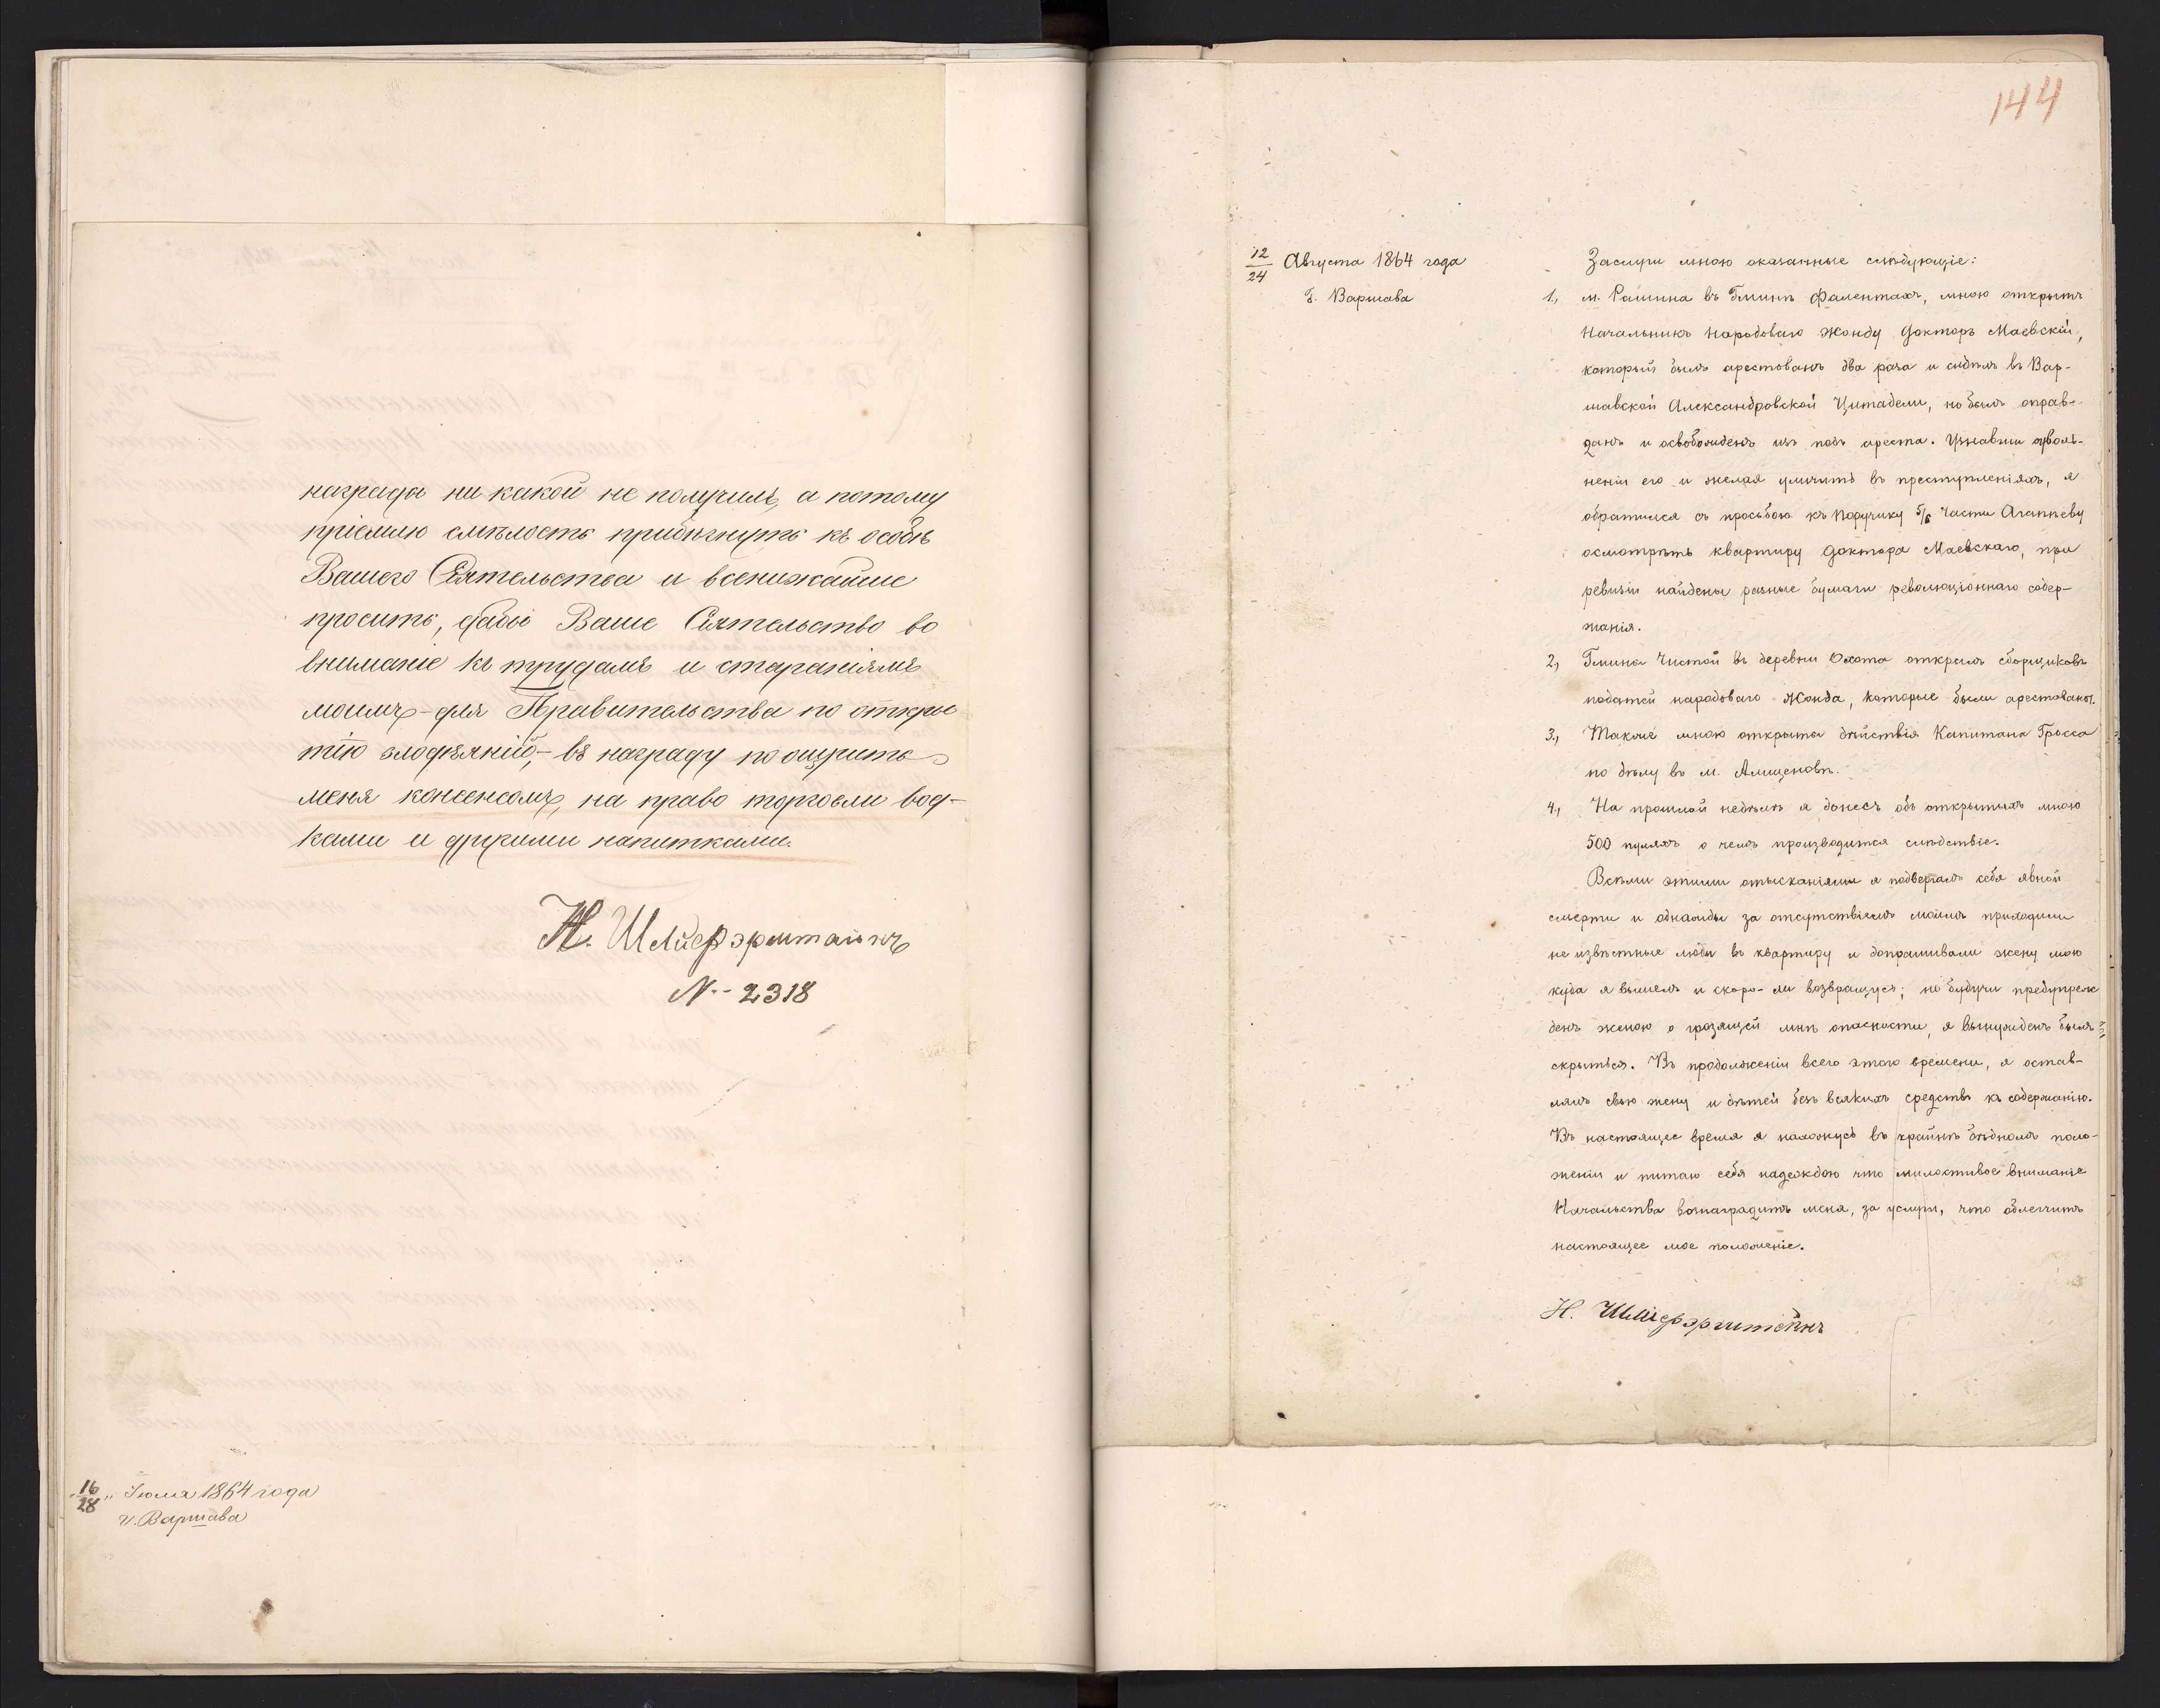 награды ни какой не получилъ, а потому
пріемлю смѣлость прибѣгнуть къ особѣ
Вашего Сіятельства и всенижайше
просить, дабы Ваше Сіятельство во
вниманіе къ трудамъ и стараніямъ
моимъ – для Правительства по откры
тію злодѣяній, – въ награду поощрить
меня консенсомъ, на право торговли вод-
ками и другими напитками.
Н.
N. - 2318
16/28 „ Іюля 1864 года
г. Варшава
144
12/24 Августа 1864 года
Г. Варшава
Заслуги мною оказанные слѣдующіе:
1., м. Рашина въ Гминѣ Фалентахъ, мною открытъ
Начальникъ Народоваго Жонду Докторъ Маевскій,
который былъ арестованъ два раза и сидѣлъ въ Вар-
шавской Александровской Цитадели, но былъ оправ-
данъ и освобожденъ изъ подъ ареста. Узнавши о уволь-
неніи его и желая уличить въ преступленіяхъ, я
обратился съ просьбою къ Поручику 5/6 Части Агапѣеву
осмотрѣть квартиру Доктора Маевскаго, при
ревизіи найдены разные бумаги революціоннаго содер-
жанія.
2., Гмина Чистой въ деревни Охота открылъ сборщиковъ
податей народоваго Жонда, которые были арестованы.
3., Также мною открыта дѣйствія Капитана Гросса
по дѣлу въ м.
4., На прошлой недѣлѣ я донесъ объ открытыхъ мною
500 пуляхъ о чемъ производится слѣдствіе.
Всѣми этими отысканіями я подвергалъ себя явной
смерти и однажды за отсутствіемъ моимъ приходили
не извѣстные люди въ квартиру и допрашивали жену мою
куда я вышелъ и скоро-ли возвращусь; но будучи предупреж
денъ женою о грозящей мнѣ опасности, я вынужденъ былъ
скрыться. Въ продолженіи всего этого времени, я остав-
лялъ свою жену и дѣтей безъ всякихъ средствъ къ содержанію.
Въ настоящее время я нахожусь въ крайнѣ бѣдномъ поло-
женіи и питаю себя надеждою что милостивое вниманіе
Начальства вознаградитъ меня, за услуги, что облегчитъ
настоящее мое положеніе.
Н.